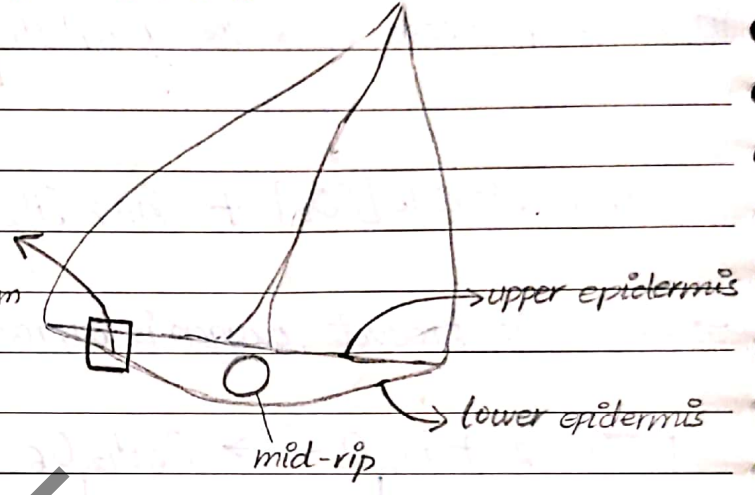 upper epidermis
lower epidermis
mid-rip